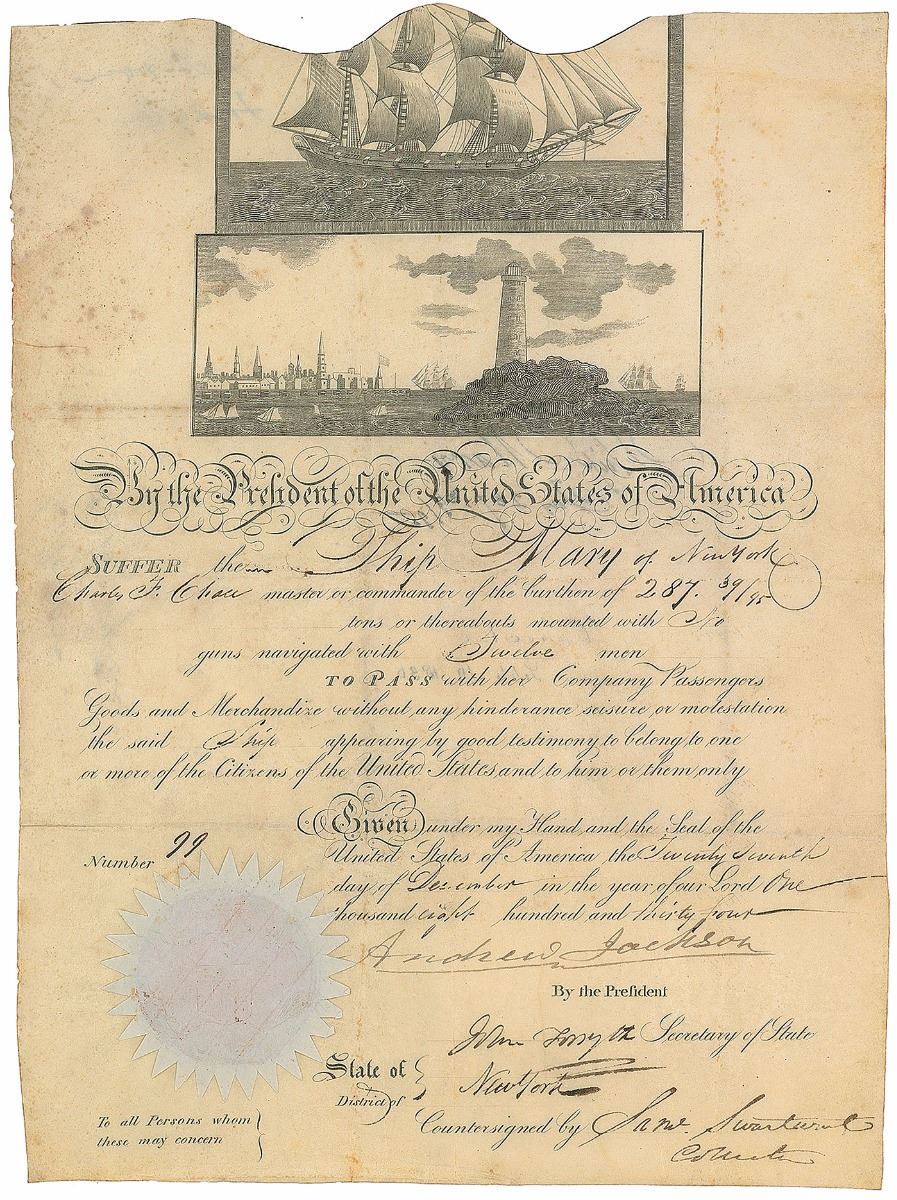 By the President of the United States of America
SUFFER the Ship Mary of New York
Charles F. Chase master or commander of the burthen of 287. 39/95
tons or thereabouts mounted with No
guns navigated with Twelve men
TO PASS with her Company Passengers
Goods and Merchandize without any hinderance seisure or molestation
the said Ship appearing by good testimony to belong to one
or more of the Citizens of the United States and to him or them only
Given under my Hand and the Seal of the
United States of America the Twenty Seventh
day of December in the year of our Lord One
thousand eight hundred and thirty four
Number 99
Andrew Jackson
By the President
John Forsyth Secretary of State
State of
New York
District of
To all Persons whom
these may concern
Countersigned by Saml Swartwout
Collector